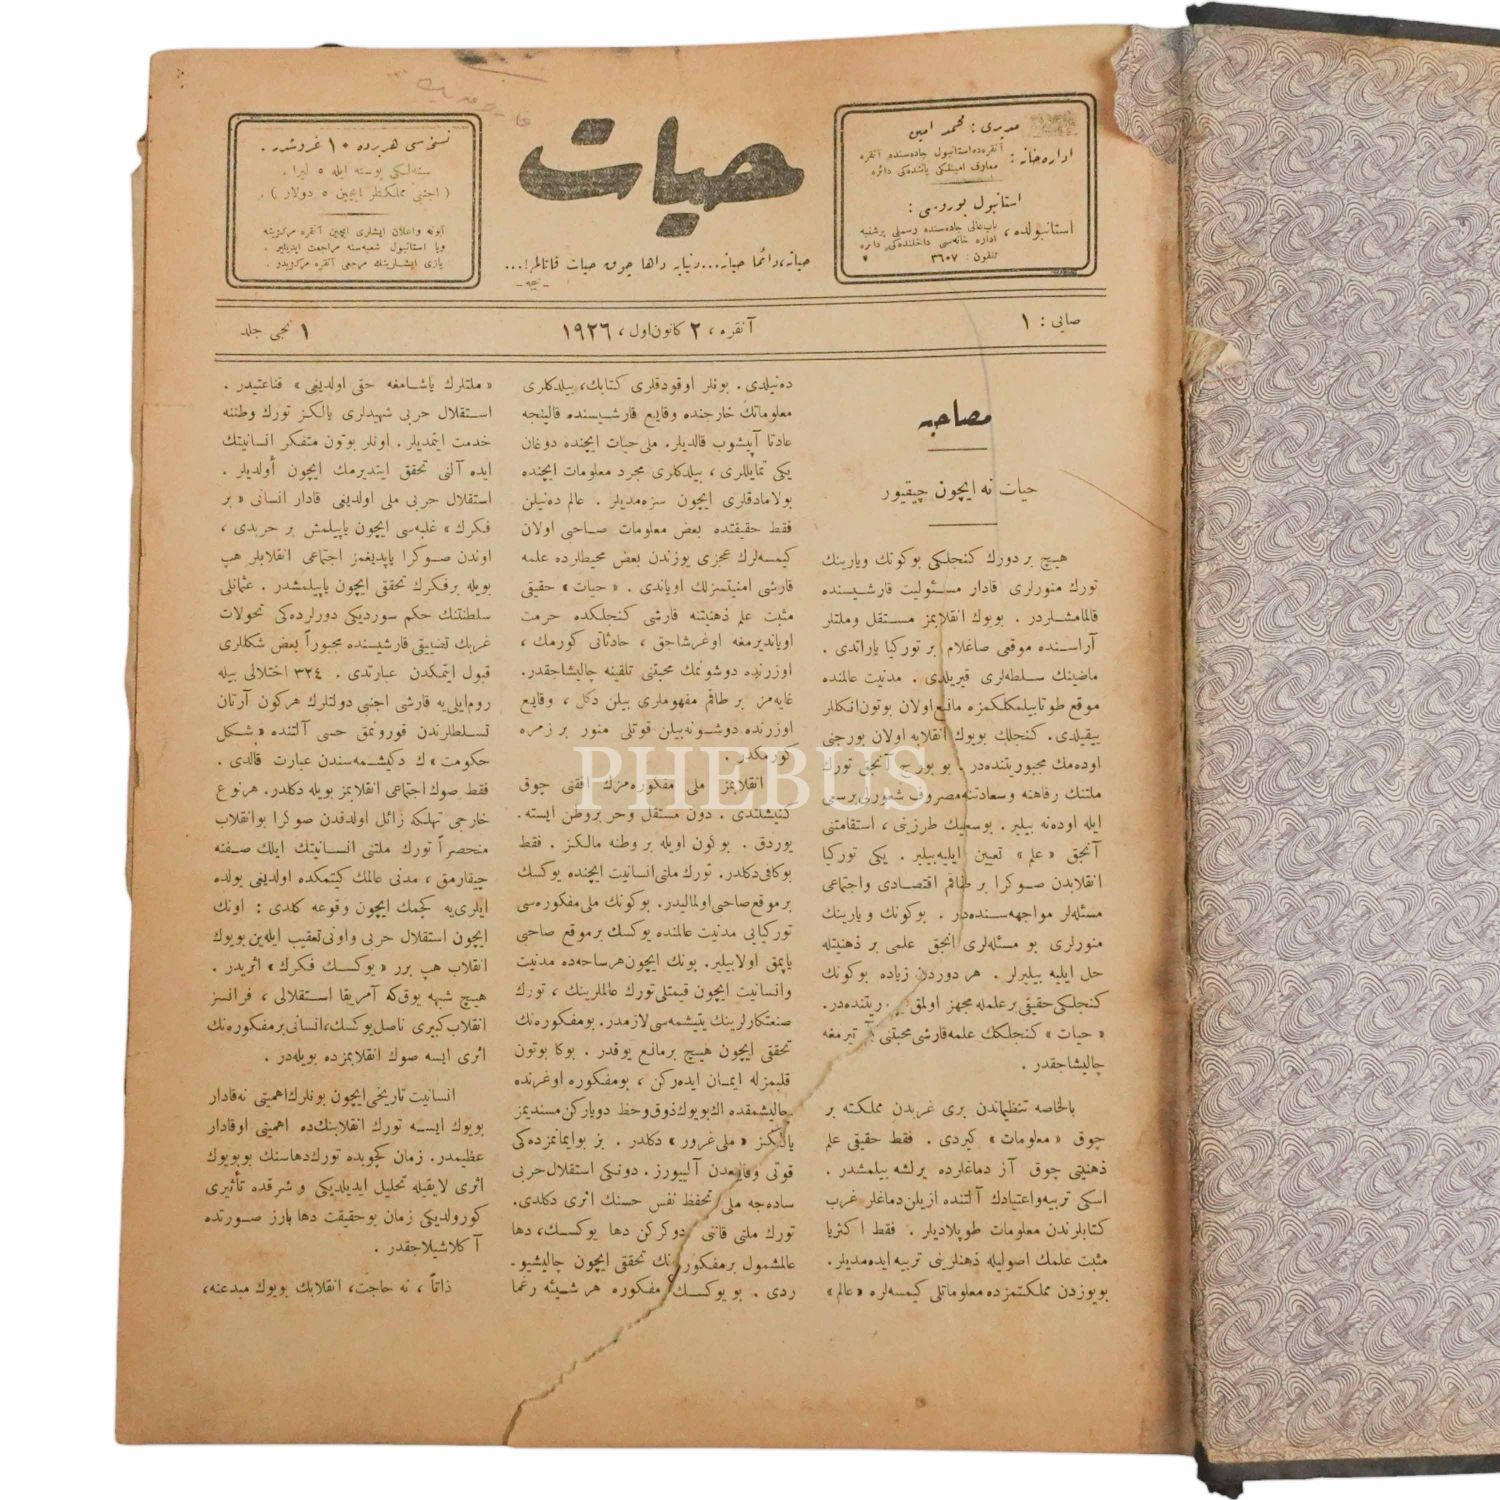 حیات
مدیری : محمد امین
اداره‌خانه : آنقره‌ده استانبول جاده‌سنده آنقره
معارف امینلکی یاننده‌کی دائره
استانبول بوروسی :
استانبولده ، باب‌عالی جاده‌سنده رسملی پرشنبه
اداره خانه‌سی داخلنده‌کی دائره
تلفون : ٣٦٠٧
نسخه‌سی هر یرده ١٠ غروشدر .
سنه‌لکی پوسته ایله ٥ لیرا .
( اجنبی مملکتلر ایچین ٥ دولار ) .
آبونه واعلان ایشلری ایچین آنقره مرکزینه
ویا استانبول شعبه‌سنه مراجعت ایدیلیر .
یازی ایشلرینك مرجعی آنقره مرکزیدر .
حیاته ، دائما حیاته... دنیایه داها چوق حیات قاتالم !...
ـ نیچه ـ
صایی : ١
آنقره ، ٢ کانون اول ، ١٩٢٦
١ نجی جلد
مصاحبه
حیات نه ایچون چیقیور
هیچ بر دورك کنجلکی بوکونك ویارینك
تورك منورلری قادار مسئولیت قارشیسنده
قالمامشلردر . بویوك انقلابمز مستقل وملتلر
آراسنده موقعی صاغلام بر تورکیا یاراتدی .
ماضینك سلطه‌لری قیریلدی . مدنیت عالمنده
موقع طوتابیلمکلکمزه مانع اولان بوتون انکللر
ییقیلدی . کنجلك بویوك انقلابه اولان بورجنی
اوده‌مك مجبوریتنده‌در . بو بورج آنجق تورك
ملتنك رفاهنه وسعادتنه مصروف شعورلی برسعی
ایله اوده‌نه بیلیر . بوسعیك طرزینی ، استقامتنی
آنجق «علم» تعیین ایلیه‌بیلیر . یکی تورکیا
انقلابدن صوکرا بر طاقم اقتصادی واجتماعی
مسئله‌لر مواجهه‌سنده‌در . بوکونك ویارینك
منورلری بو مسئله‌لری انجق علمی بر ذهنیتله
حل ایلیه بیلیرلر . هر دوردن زیاده بوکونك
کنجلکی حقیقی بر علمله مجهز اولمق
«حیات» کنجلکك علمه قارشی محبتنی
چالیشاجقدر .
بالخاصه تنظیماتدن بری غربدن مملکته بر
چوق «معلومات» کیردی . فقط حقیقی علم
ذهنیتی چوق آز دماغلرده یرلشه بیلمشدر .
اسکی تربیه واعتیادك آلتنده ازیلن دماغلر غرب
کتابلرندن معلومات طوپلادیلر . فقط اکثریا
مثبت علمك اصولیله ذهنلرینی تربیه ایده‌مدیلر .
بویوزدن مملکتمزده معلوماتلی کیمسه‌لره «عالم»
ده‌نیلدی . بونلر اوقودقلری کتابك، بیلدکلری
معلوماتك خارجنده وقایع قارشیسنده قالینجه
عادتا آپیشوب قالدیلر . ملی حیات ایچنده دوغان
یکی تمایللری ، بیلدکلری مجرد معلومات ایچنده
بولامادقلری ایچون سزه‌مدیلر . عالم ده‌نیلن
فقط حقیقتده بعض معلومات صاحبی اولان
کیمسه‌لرك عجزی یوزندن بعض محیطلرده علمه
قارشی امنیتسزلك اویاندی . «حیات» حقیقی
مثبت علم ذهنیتنه قارشی کنجلکده حرمت
اویاندیرمغه اوغرشاجق ، حادثاتی کورمك ،
اوزرنده دوشونمك محبتنی تلقینه چالیشاجقدر.
غایه‌مز بر طاقم مفهوملری بیلن دکل ، وقایع
اوزرنده دوشونه‌بیلن قوتلی منور بر زمره
کورمکدر .
انقلابمز ملی مفکوره‌مزك افقنی چوق
کنیشلتدی . دون مستقل وحر بروطن ایسته‌
یوردق . بوکون اویله بر وطنه مالکز . فقط
بوکافی دکلدر . تورك ملتی انسانیت ایچنده یوکسك
برموقع صاحبی اولمالیدر. بوکونك ملی مفکوره‌سی
تورکیایی مدنیت عالمنده یوکسك برموقع صاحبی
یاپمق اولابیلیر. بونك ایچون هرساحه‌ده مدنیت
وانسانیت ایچون قیمتلی تورك عالملرینك ، تورك
صنعتکارلرینك یتیشمه‌سی لازمدر. بومفکوره‌نك
تحققی ایچون هیچ برمانع یوقدر . بوکا بوتون
قلبمزله ایمان ایده‌رکن ، بومفکوره اوغرنده
چالیشمقده اك بویوك ذوق وحظ دویارکن مسندیمز
یالکز «ملی غرور» دکلدر . بز بوایمانمزده‌کی
قوتی وقایعدن آلییورز . دونکی استقلال حربی
ساده‌جه ملی تحفظ نفس حسنك اثری دکلدی.
تورك ملتی قانی دوکرکن دها یوکسك، دها
عالمشمول برمفکوره‌نك تحققی ایچون چالیشیو-
ردی . بو یوکسك مفکوره هر شیئه رغما
«ملتلرك یاشامغه حقی اولدیغی» قناعتیدر .
استقلال حربی شهیدلری یالکز تورك وطننه
خدمت ایتمدیلر . اونلر بوتون متفکر انسانیتك
ایده آلنی تحقق ایتدیرمك ایچون أولدیلر .
استقلال حربی ملی اولدیغی قادار انسانی «بر
فکرك» غلبه‌سی ایچون یاپیلمش بر حربدی ،
اوندن صوکرا یاپدیغمز اجتماعی انقلابلر هپ
بویله برفکرك تحققی ایچون یاپیلمشدر . عثمانلی
سلطنتنك حکم سوردیکی دورلرده‌کی تحولات
غربك تضییقی قارشیسنده مجبوراً بعض شکللری
قبول ایتمکدن عبارتدی . ٣٢٤ اختلالی بیله
روم‌ایلی‌یه قارشی اجنبی دولتلرك هرکون آرتان
تسلطلرندن قورونمق حسی آلتنده «شکل
حکومت» ك دکیشمه‌سندن عبارت قالدی .
فقط صوك اجتماعی انقلابمز بویله دکلدر. هرنوع
خارجی تهلکه زائل اولدقدن صوکرا بوانقلاب
منحصراً تورك ملتنی انسانیتك ایلك صفنه
چیقارمق ، مدنی عالمك کیتمکده اولدیغی یولده
ایلری‌یه کچمك ایچون وقوعه کلدی : اونك
ایچون استقلال حربی واونی تعقیب ایله‌ین بویوك
انقلاب هپ برر «یوکسك فکرك» اثریدر .
هیچ شبهه یوق‌که آمریقا استقلالی ، فرانسز
انقلاب کبیری ناصل یوکسك، انسانی برمفکوره‌نك
اثری ایسه صوك انقلابمزده بویله‌در .
انسانیت تاریخی ایچون بونلرك اهمیتی نه قادار
بویوك ایسه تورك انقلابنك‌ده اهمیتی اوقادار
عظیمدر . زمان کچوبده تورك دهاسنك بوبویوك
اثری لایقیله تحلیل ایدیلدیکی و شرقده تأثیری
کورولدیکی زمان بوحقیقت دها بارز صورتده
آکلاشیلاجقدر .
ذاتاً ، نه حاجت، انقلابك بویوك مبدعنه،
PHEBUS